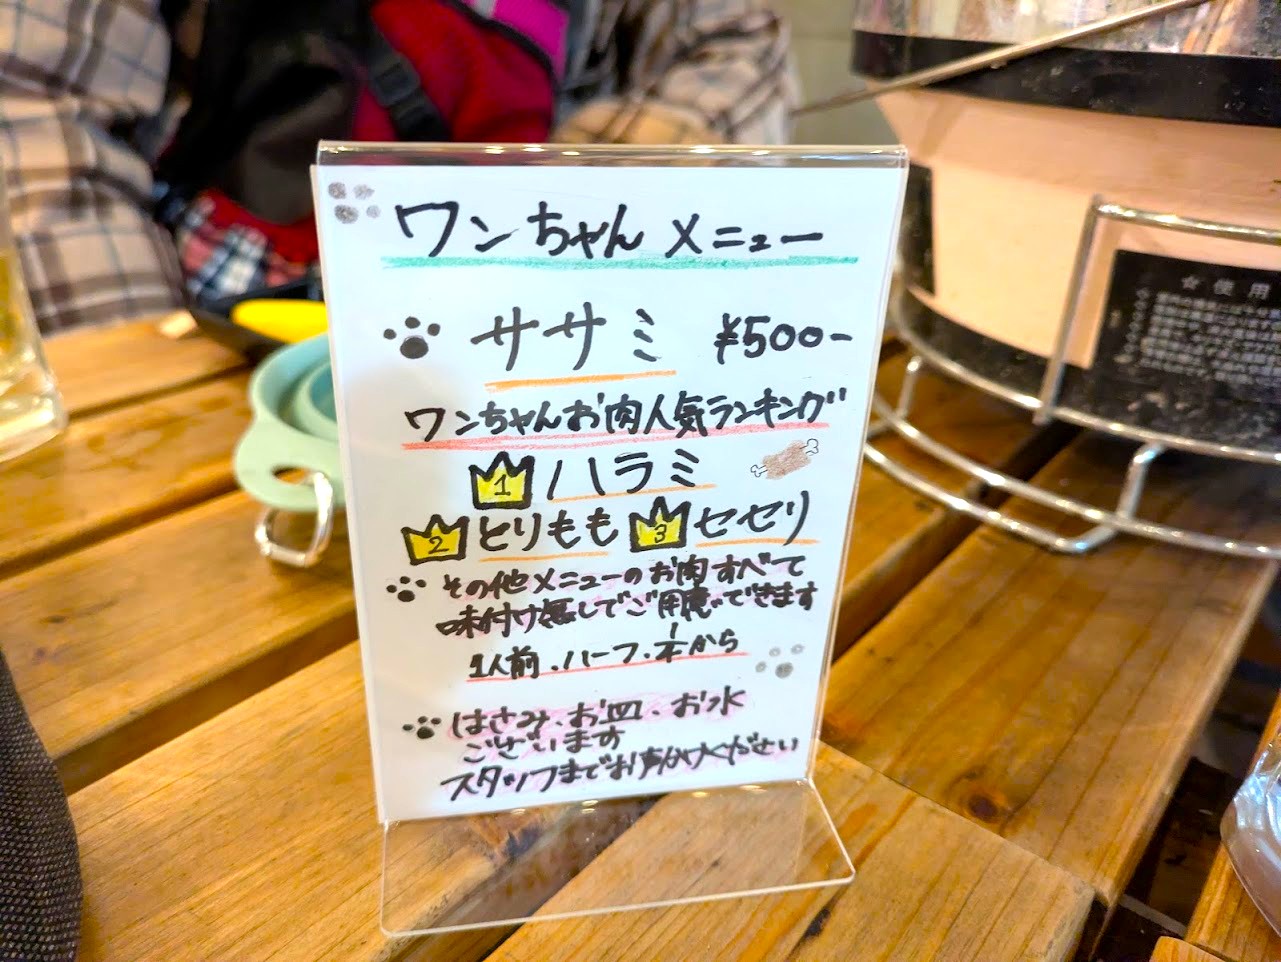 ワンちゃんメニュー
ササミ ¥500-
ワンちゃんお肉人気ランキング
1 ハラミ
2 とりもも 3 セセリ
その他メニューのお肉すべて
味付け無しでご用意できます
1人前、ハーフ、1/本から
はさみ、お皿、お水
ございます
スタッフまでお声がけください
☆使用